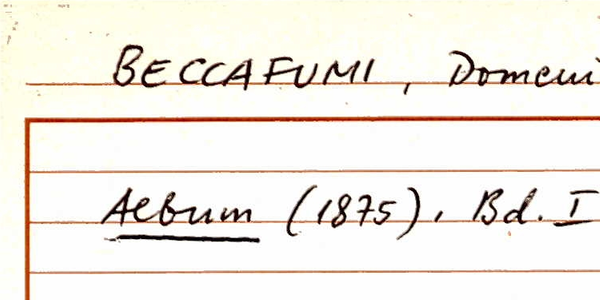 BECCAFUMI, Domeni
Album (1875). Bd. I